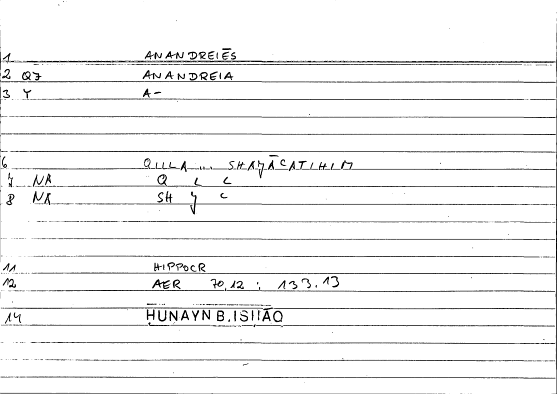 1 ANANDREIĒS
2 Q7 ANANDREIA
3 Y A-
6 QILLA ... SHAJĀCATIHIM
7 NA Q L L
8 NA SH J C
11 HIPPOCR
12 AER 70,12 : 133.13
14 HUNAYN B. ISHĀQ